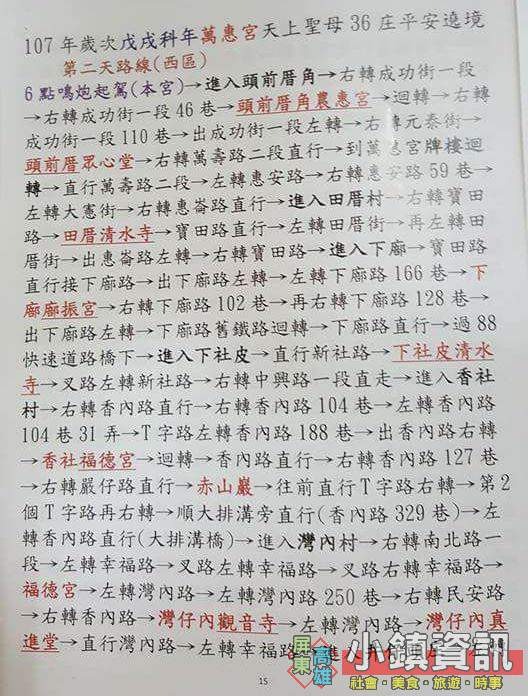 107年歲次戊戌科年萬惠宮天上聖母36庄平安遶境
第二天路線(西區)
6點鳴炮起駕(本宮)→進入頭前厝角→右轉成功街一段
→右轉成功街一段46巷→頭前厝角農惠宮→迴轉→右轉
成功街一段110巷→出成功街一段左轉→右轉元泰街→
頭前厝眾心堂→右轉萬壽路二段直行→到萬惠宮牌樓迴
轉→直行萬壽路二段→左轉惠安路→右轉惠安路59巷→
左轉大憲街→右轉惠崙路直行→進入田厝村→右轉寶田
路→田厝清水寺→寶田路直行→左轉田厝街→再左轉田
厝街→出惠崙路左轉→右轉寶田路→進入下廍→寶田路
直行接下廍路→出下廍路左轉→左轉下廍路166巷→下
廍廍振宮→右轉下廍路102巷→再右轉下廍路128巷→
出下廍路左轉→下廍路舊鐵路迴轉→下廍路直行→過88
快速道路橋下→進入下社皮→直行新社路→下社皮清水
寺→叉路左轉新社路→右轉中興路一段直走→進入香社
村→右轉香內路直行→右轉香內路104巷→左轉香內路
104巷31弄→T字路左轉香內路188巷→出香內路右轉
→香社福德宮→迴轉→香內路直行→右轉香內路127巷
→右轉嚴仔路直行→赤山巖→往前直行T字路右轉→第2
個T字路再右轉→順大排溝旁直行(香內路329巷)→左
轉香內路直行(大排溝橋)→進入灣內村→右轉南北路一
段→左轉幸福路→叉路左轉幸福路→叉路右轉幸福路→
福德宮→左轉灣內路→左轉灣內路250巷→右轉民安路
→右轉香內路→灣仔內觀音寺→左轉灣內路→灣仔內真
進堂→直行灣內路→左轉幸福路
15
屏東高雄
小鎮資訊
社會・美食・旅遊・時事